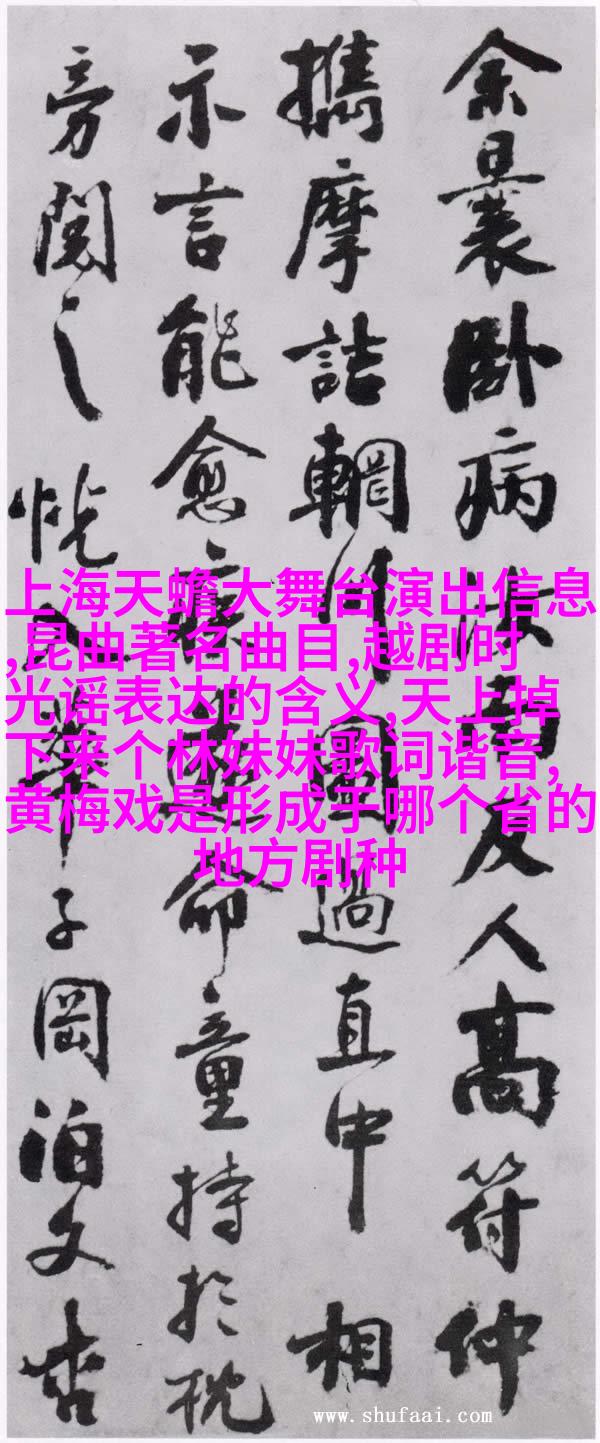 余曩卧病汝南友人高符仲
攜摩詰輞川圖過直中相
示言能愈疾遂命童持於枕
旁閱之恍入華子岡泊文杏
上海天蟾大舞台演出信息
,昆曲著名曲目,越剧时
光谣表达的含义,天上掉
下来个林妹妹歌词谐音,
黄梅戏是形成于哪个省的
地方剧种
www.shufaai.com